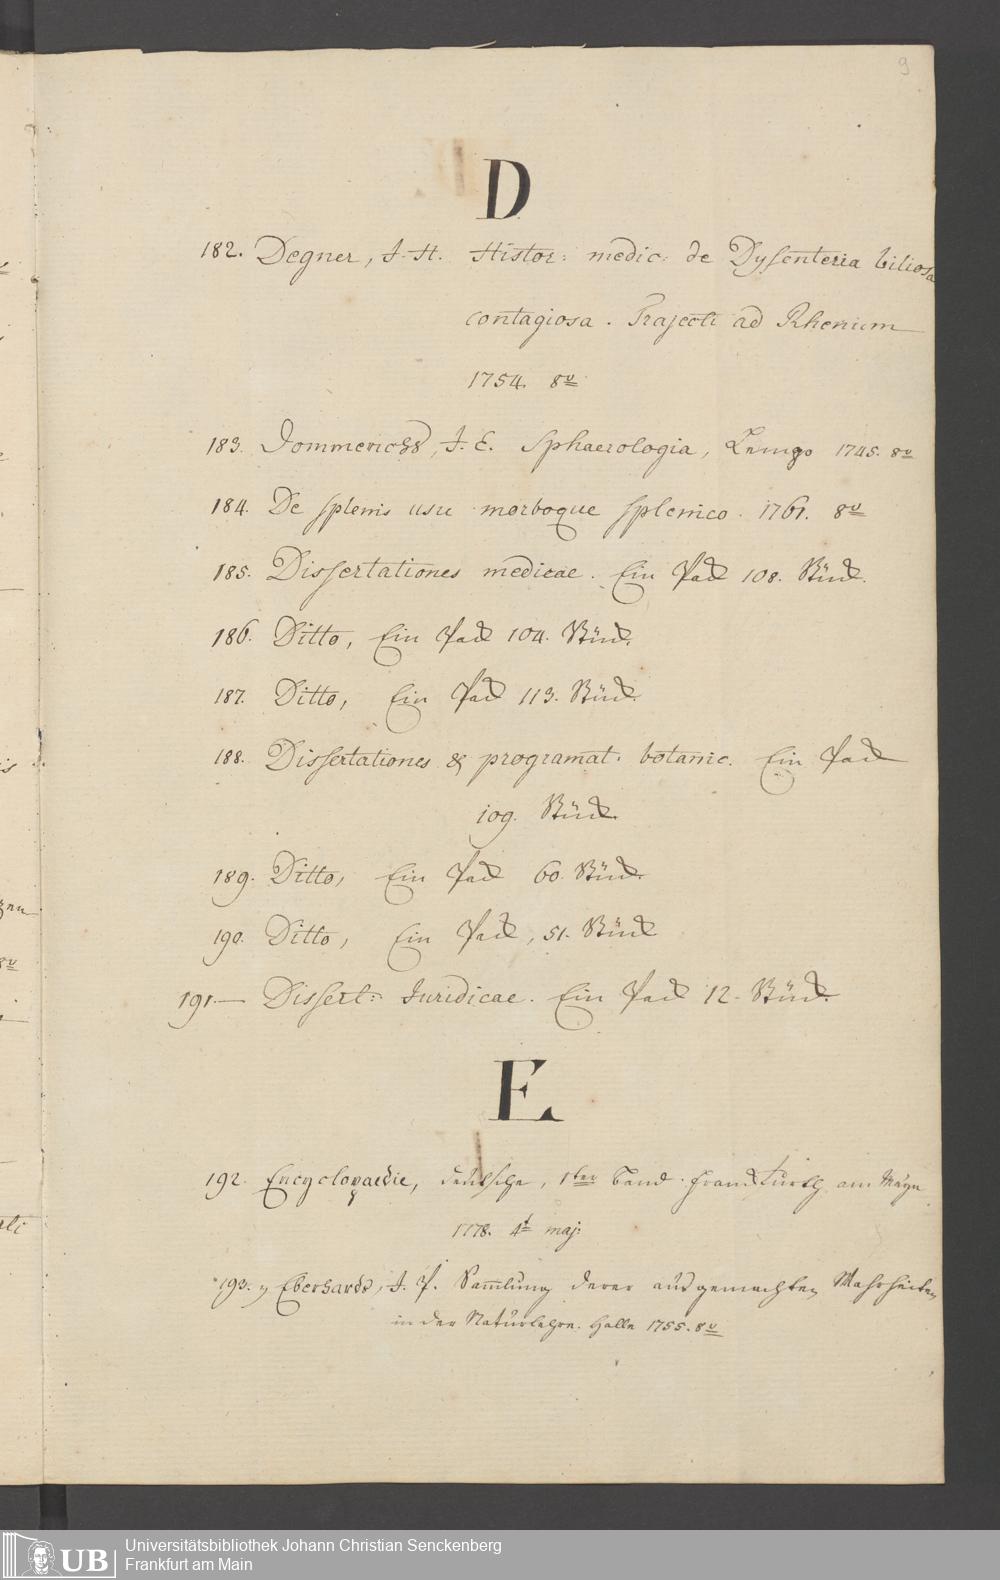 9
D
182. Degner, J. H. Histor: medic: de Dysenteria biliosa
contagiosa. Trajecti ad Rhenum
1754. 8º
183. Dommerichs, J. E. Sphaerologia, Lemgo 1745. 8º
184. De splenis usu morboque splenico. 1761. 8º
185. Dissertationes medicae. Ein Pack 108. Stück.
186. Ditto, Ein Pack 104. Stück.
187. Ditto, Ein Pack 113. Stück.
188. Dissertationes & programat. botanic. Ein Pack
109. Stück.
189. Ditto, Ein Pack 60. Stück.
190. Ditto, Ein Pack, 51. Stück
191.— Dissert: Juridicae. Ein Pack 12. Stück.
E
192. Encyclopaedie, deutsche, 1ter Band. Franckfurth am Mayn
1778. 4t maj:
193. Eberhards, J. P. Samlung derer ausgemachten Wahrheiten
in der Naturlehre. Halle 1755. 8º
UB
Universitätsbibliothek Johann Christian Senckenberg
Frankfurt am Main